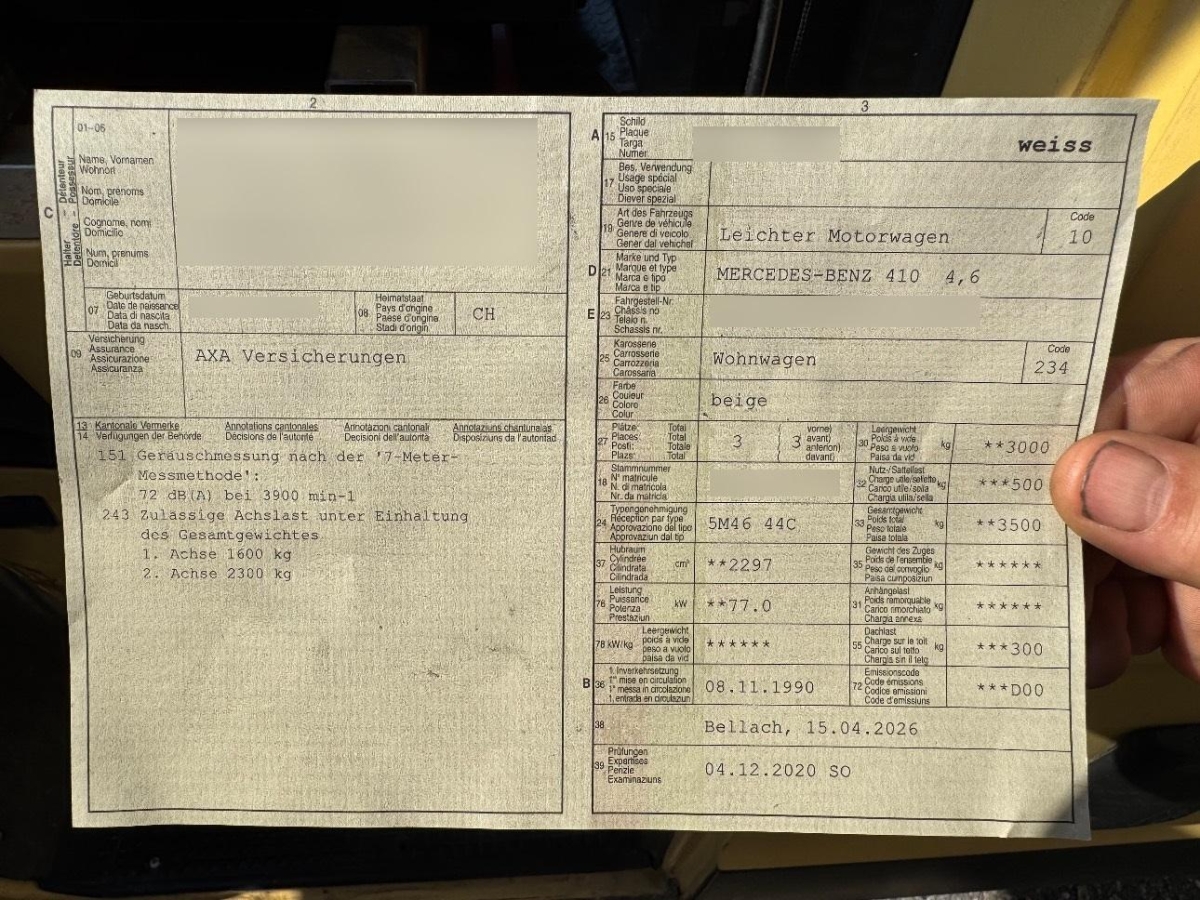 2
01-06
C
Halter – Détenteur
Detentore – Possessur
Name, Vornamen
Wohnort
Nom, prenoms
Domicile
Cognome, nomi
Domicilio
Num, prenums
Domicil
07
Geburtsdatum
Date de naissance
Data di nascita
Data da nasch.
08
Heimatstaat
Pays d'origine
Paese d'origine
Stadi d'origin
CH
09
Versicherung
Assurance
Assicurazione
Assicuranza
AXA Versicherungen
13 Kantonale Vermerke Annotations cantonales Annotazioni cantonali Annotaziuns chantunalas
14 Verfügungen der Behörde Décisions de l'autorité Decisioni dell'autorità Disposiziuns da l'autoritad
151 Geräuschmessung nach der '7-Meter-
Messmethode':
72 dB(A) bei 3900 min-1
243 Zulässige Achslast unter Einhaltung
des Gesamtgewichtes
1. Achse 1600 kg
2. Achse 2300 kg
3
A 15
Schild
Plaque
Targa
Numer
weiss
17
Bes. Verwendung
Usage spécial
Uso speciale
Diever spezial
19
Art des Fahrzeugs
Genre de véhicule
Genere di veicolo
Gener dal vehichel
Leichter Motorwagen
Code
10
D 21
Marke und Typ
Marque et type
Marca e tipo
Marca e tip
MERCEDES-BENZ 410 4,6
E 23
Fahrgestell-Nr.
Châssis no
Telaio n.
Schassis nr.
25
Karosserie
Carrosserie
Carrozzeria
Carossaria
Wohnwagen
Code
234
26
Farbe
Couleur
Colore
Colur
beige
27
Plätze: Total
Places: Total
Posti: Totale
Plazs: Total
3
3
vorne)
avant)
anteriori)
davant)
30
Leergewicht
Poids à vide
Peso a vuoto
Paisa da vid
kg
**3000
18
Stammnummer
N° matricule
N. di matricola
Nr. da matricla
32
Nutz-/Sattellast
Charge utile/sellette
Carico utile/sella
Chargia utila/sella
kg
***500
24
Typengenehmigung
Réception par type
Approvazione del tipo
Approvaziun dal tip
5M46 44C
33
Gesamtgewicht
Poids total
Peso totale
Paisa totala
kg
**3500
37
Hubraum
Cylindrée
Cilindrata
Cilindrada
cm³
**2297
35
Gewicht des Zuges
Poids de l'ensemble
Peso del convoglio
Paisa cumposiziun
kg
******
76
Leistung
Puissance
Potenza
Prestaziun
kW
**77.0
31
Anhängelast
Poids remorquable
Carico rimorchiato
Chargia annexa
kg
******
78 kW/kg
Leergewicht
poids à vide
peso a vuoto
paisa da vid
******
55
Dachlast
Charge sur le toit
Carico sul tetto
Chargia sin il tetg
kg
***300
B 36
1. Inverkehrsetzung
1re mise en circulation
1a messa in circolazione
1. entrada en circulaziun
08.11.1990
72
Emissionscode
Code émissions
Codice emissioni
Code d'emissiuns
***D00
38
Bellach, 15.04.2026
39
Prüfungen
Expertises
Perizie
Examinaziuns
04.12.2020 SO